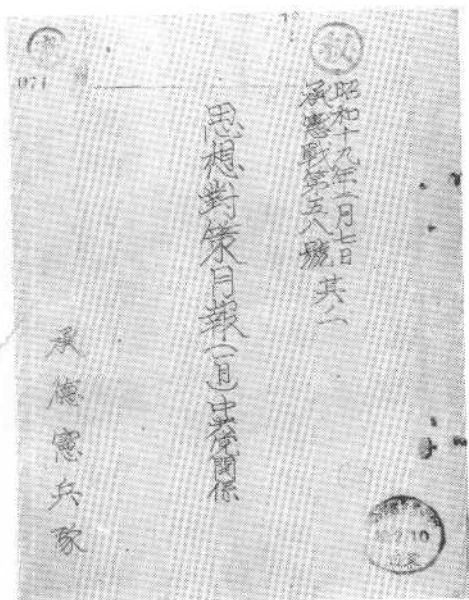 昭和十九年二月七日
承憲戰第五八號 其二
思想對策月報(一月)中共關係
承德憲兵隊
071